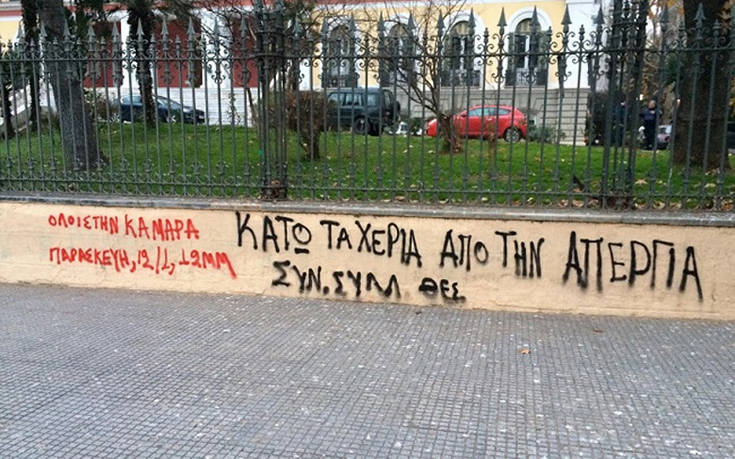 ΟΛΟΙ ΣΤΗΝ ΚΑΜΑΡΑ
ΠΑΡΑΣΚΕΥΗ, 12/1, 12ΜΜ
ΚΑΤΩ ΤΑ ΧΕΡΙΑ ΑΠΟ ΤΗΝ ΑΠΕΡΓΙΑ
ΣΥΝ. ΣΥΛΛ ΘΕΣ